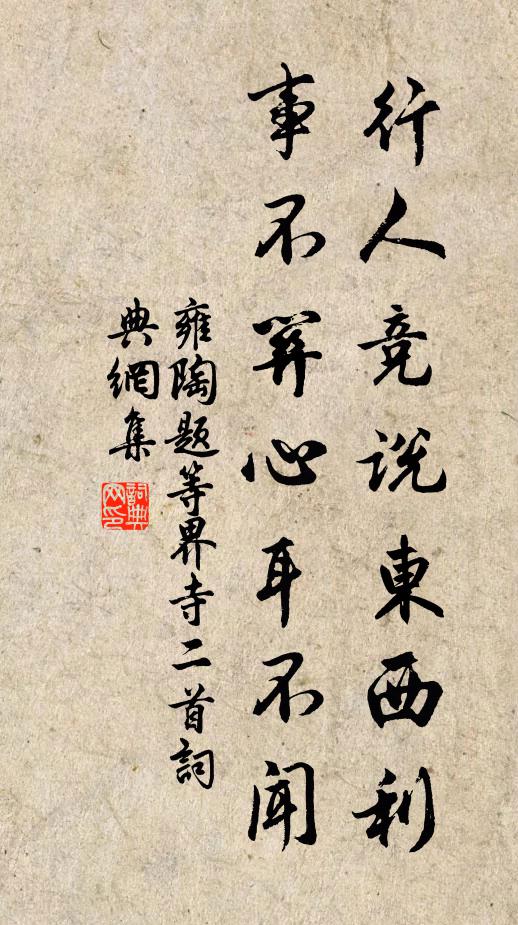 行人竞說東西利
事不關心耳不聞
雍陶題等界寺二首詞
典網集
詞典
网印